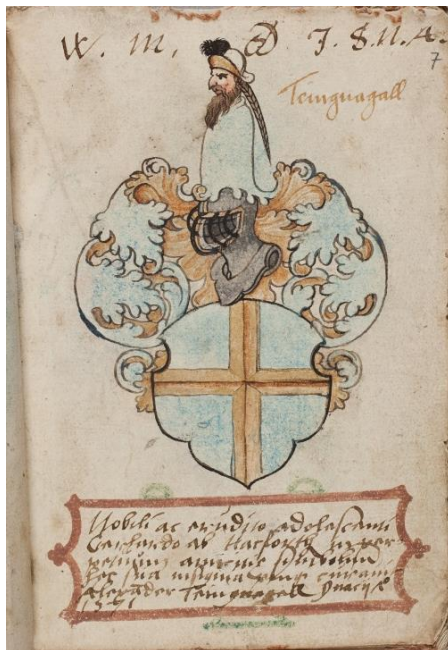 W. M. D. J. S. II. A.
7
Teingnagall
Nobili ac erudito adolescenti
Gerhardo ab Hacfortt in per
petuum amicitie
hec sua insignia
Alexader Teingnagall